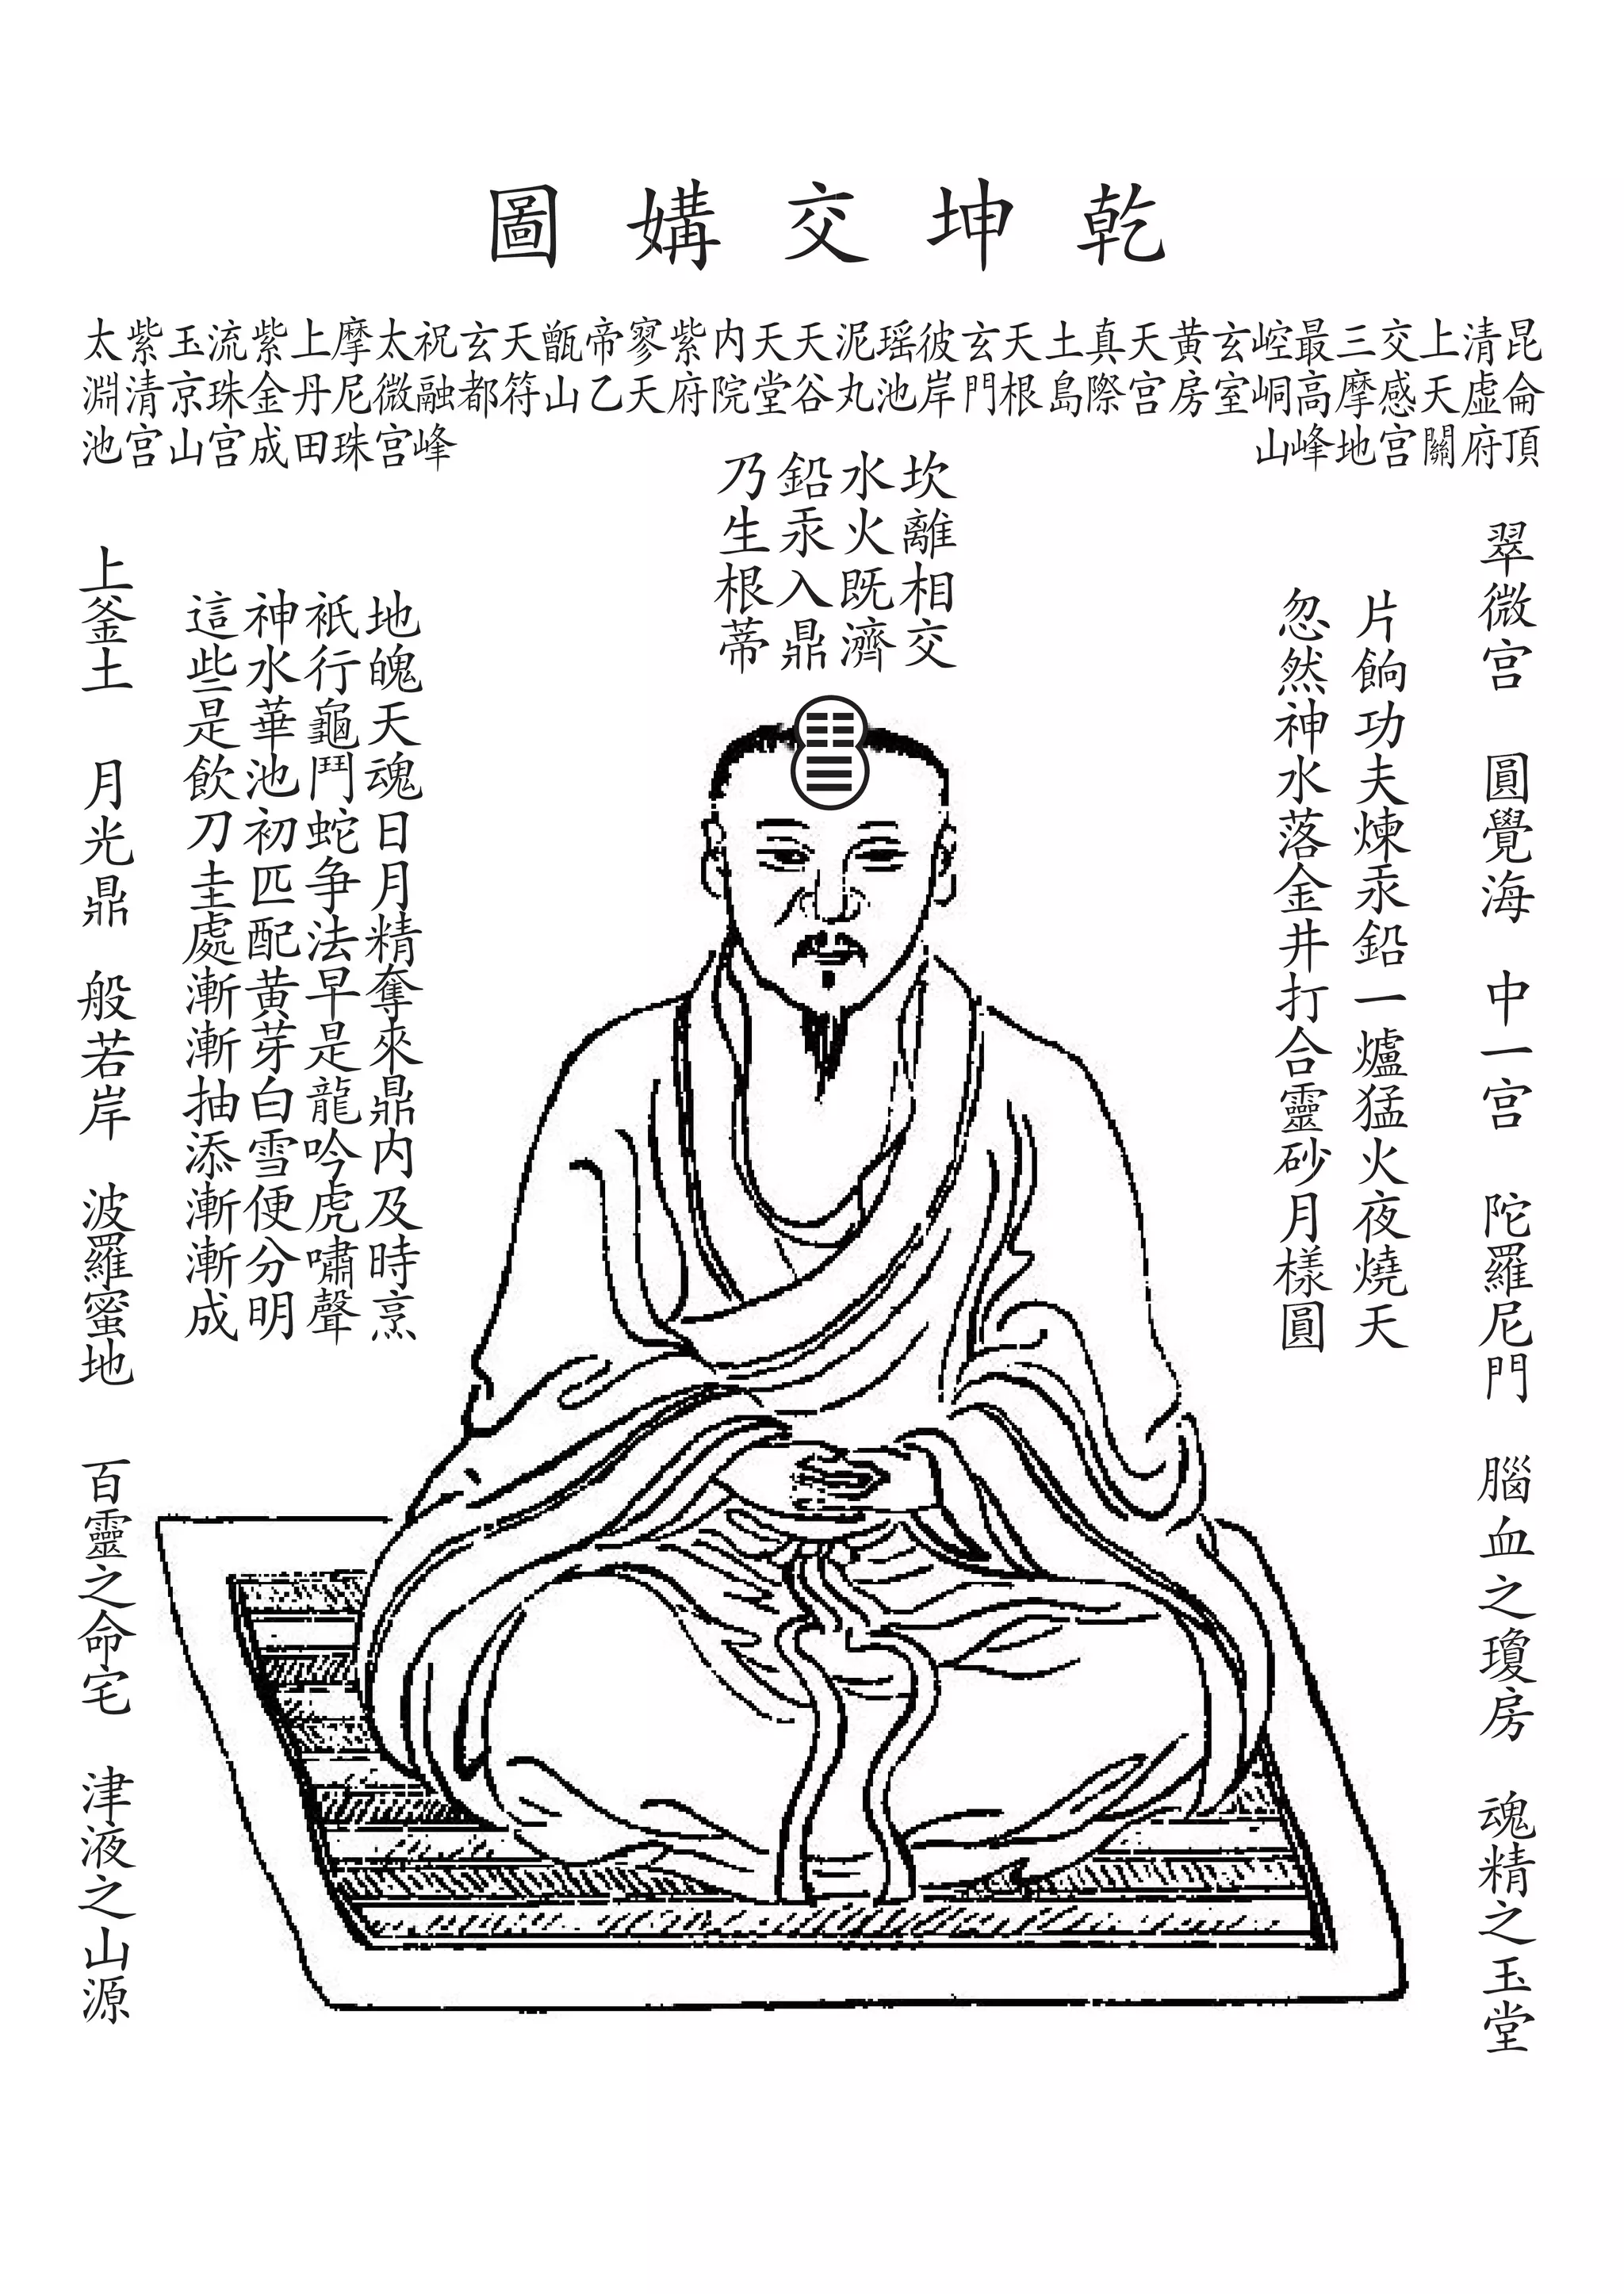 乾坤交媾圖
昆侖頂
清虚府
上天關
交感宫
三摩地
最高峰
崆峒山
玄室
黄房
天宫
真際
土島
天根
玄門
彼岸
瑶池
泥丸
天谷
天堂
内院
紫府
寥天
帝乙
甑山
天符
玄都
祝融峰
太微宫
摩尼珠
上丹田
紫金成
流珠宫
玉京山
紫清宫
太淵池
翠微宫　圓覺海　中一宫　陀羅尼門　腦血之瓊房　魂精之玉堂
片餉功夫煉汞鉛一爐猛火夜燒天
忽然神水落金井打合靈砂月樣圓
坎離相交
水火既濟
鉛汞入鼎
乃生根蒂
地魄天魂日月精奪來鼎内及時烹
衹行龜鬥蛇争法早是龍吟虎嘯聲
神水華池初匹配黄芽白雪便分明
這些是飲刀圭處漸漸抽添漸漸成
上釜土　月光鼎　般若岸　波羅蜜地　百靈之命宅　津液之山源